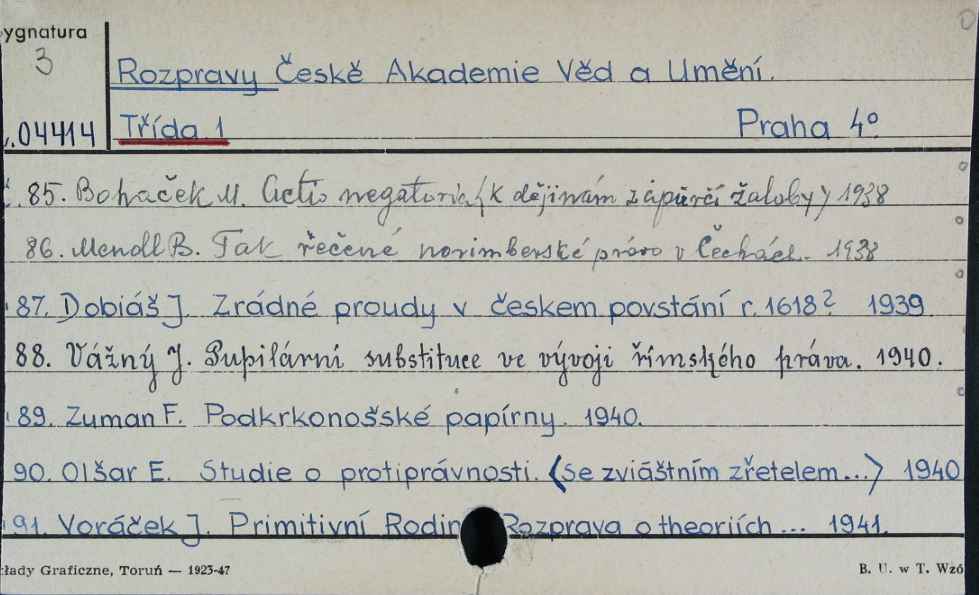 ygnatura
3
Rozpravy České Akademie Věd a Umění.
04414 Třída 1 Praha 4°
85. Boháček M. Actio negatoria (K dějinám zápůrčí žaloby) 1938
86. Mendl B. Tak řečené norimberské právo v Čechách. 1938
87. Dobiáš J. Zrádné proudy v českem povstání r. 1618? 1939
88. Vážný J. Pupilární substituce ve vývoji římského práva. 1940.
89. Zuman F. Podkrkonošské papírny. 1940.
90. Olšar E. Studie o protiprávnosti. (Se zviáštním zřetelem...) 1940
91. Voráček J. Primitivní Rodin Rozprava o theoriích... 1941.
łady Graficzne, Toruń — 1923-47 B. U. w T. Wzó